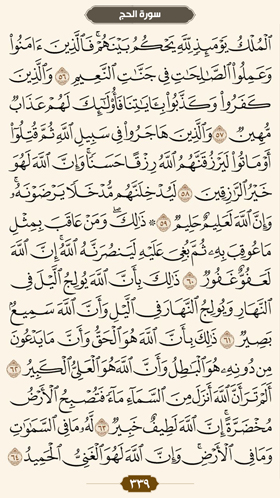 سورة الحج
ٱلْمُلْكُ يَوْمَئِذٍ لِّلَّهِ يَحْكُمُ بَيْنَهُمْ ۚ فَٱلَّذِينَ ءَامَنُوا۟
وَعَمِلُوا۟ ٱلصَّـٰلِحَـٰتِ فِى جَنَّـٰتِ ٱلنَّعِيمِ ٥٦ وَٱلَّذِينَ
كَفَرُوا۟ وَكَذَّبُوا۟ بِـَٔايَـٰتِنَا فَأُو۟لَـٰٓئِكَ لَهُمْ عَذَابٌ
مُّهِينٌ ٥٧ وَٱلَّذِينَ هَاجَرُوا۟ فِى سَبِيلِ ٱللَّهِ ثُمَّ قُتِلُوٓا۟
أَوْ مَاتُوا۟ لَيَرْزُقَنَّهُمُ ٱللَّهُ رِزْقًا حَسَنًا ۚ وَإِنَّ ٱللَّهَ لَهُوَ
خَيْرُ ٱلرَّٰزِقِينَ ٥٨ لَيُدْخِلَنَّهُم مُّدْخَلًا يَرْضَوْنَهُۥ ۗ
وَإِنَّ ٱللَّهَ لَعَلِيمٌ حَلِيمٌ ٥٩ ۞ ذَٰلِكَ وَمَنْ عَاقَبَ بِمِثْلِ
مَا عُوقِبَ بِهِۦ ثُمَّ بُغِىَ عَلَيْهِ لَيَنصُرَنَّهُ ٱللَّهُ ۗ إِنَّ ٱللَّهَ
لَعَفُوٌّ غَفُورٌ ٦٠ ذَٰلِكَ بِأَنَّ ٱللَّهَ يُولِجُ ٱلَّيْلَ فِى
ٱلنَّهَارِ وَيُولِجُ ٱلنَّهَارَ فِى ٱلَّيْلِ وَأَنَّ ٱللَّهَ سَمِيعٌۢ
بَصِيرٌ ٦١ ذَٰلِكَ بِأَنَّ ٱللَّهَ هُوَ ٱلْحَقُّ وَأَنَّ مَا يَدْعُونَ
مِن دُونِهِۦ هُوَ ٱلْبَـٰطِلُ وَأَنَّ ٱللَّهَ هُوَ ٱلْعَلِىُّ ٱلْكَبِيرُ ٦٢
أَلَمْ تَرَ أَنَّ ٱللَّهَ أَنزَلَ مِنَ ٱلسَّمَآءِ مَآءً فَتُصْبِحُ ٱلْأَرْضُ
مُخْضَرَّةً ۗ إِنَّ ٱللَّهَ لَطِيفٌ خَبِيرٌ ٦٣ لَّهُۥ مَا فِى ٱلسَّمَـٰوَٰتِ
وَمَا فِى ٱلْأَرْضِ ۗ وَإِنَّ ٱللَّهَ لَهُوَ ٱلْغَنِىُّ ٱلْحَمِيدُ ٦٤
٣٣٩